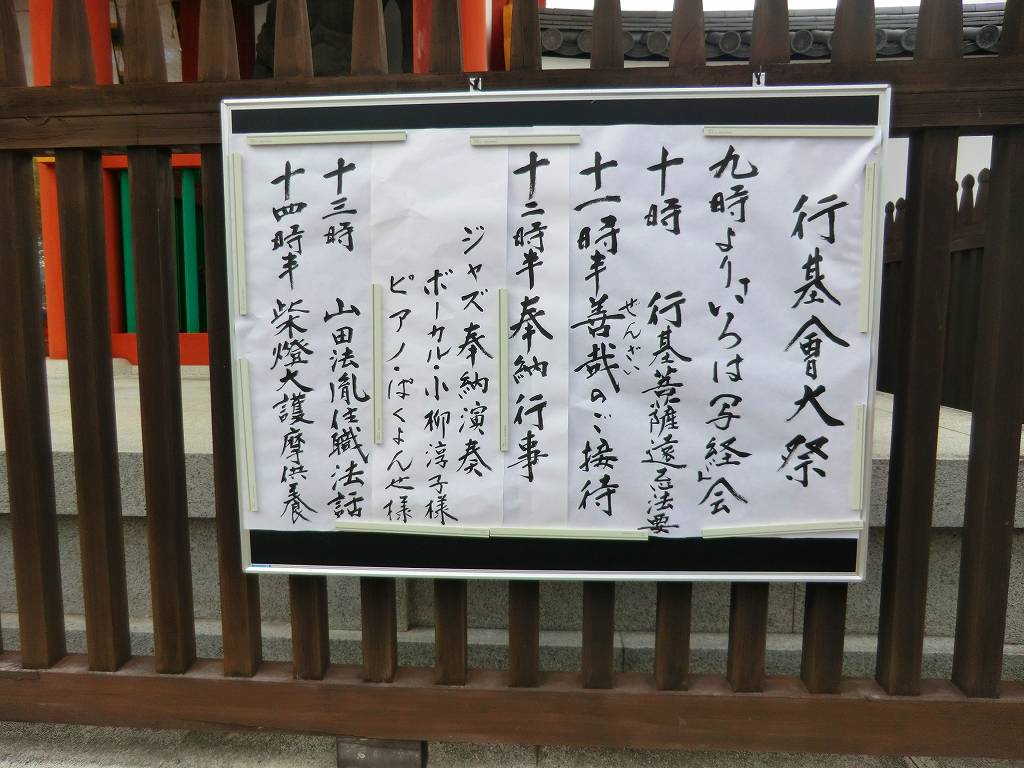 行基會大祭
九時より「いろは写経」会
十時　行基菩薩遠忌法要
十一時半善哉のご接待
ぜんざい
十二時半奉納行事
ジャズ奉納演奏
ボーカル・小柳淳子様
ピアノ・ぱくよんせ様
十三時　山田法胤住職法話
十四時半　柴燈大護摩供養